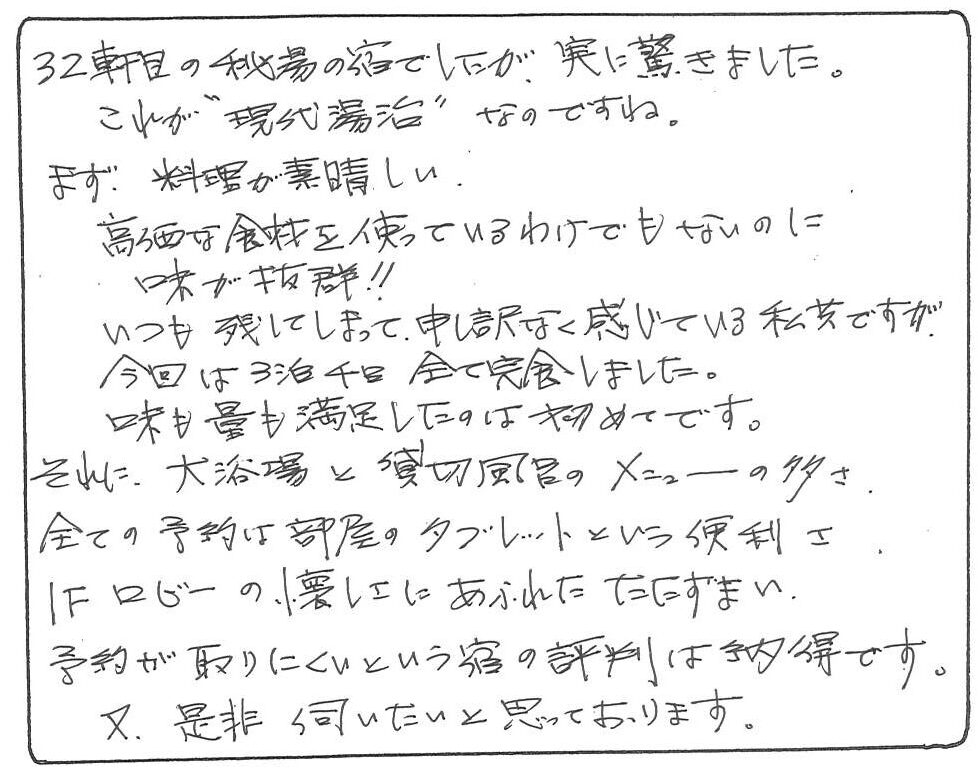 32軒目の秘湯の宿でしたが、実に驚きました。
これが“現代湯治”なのですね。
まず、料理が素晴しい、
高価な食材を使っているわけでもないのに
味が抜群!!
いつも残してしまって、申し訳なく感じている私共ですが、
今回は3泊 全て完食しました。
味も量も満足したのは初めてです。
それに、大浴場と貸切風呂のメニューの多さ、
全ての予約は部屋のタブレットという便利さ、
1Fロビーの懐しさにあふれたたたずまい、
予約が取りにくいという宿の評判は納得です。
又、是非伺いたいと思っております。